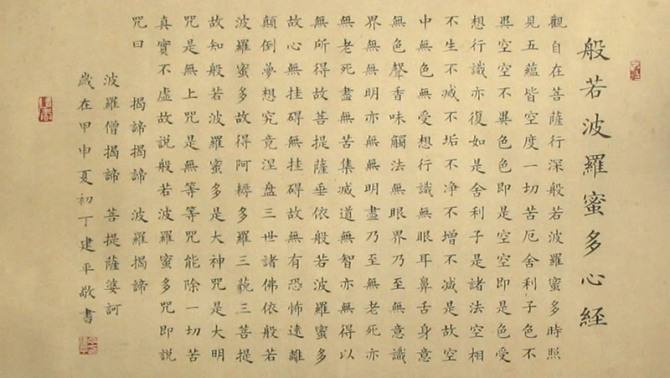 般若波羅蜜多心経
觀自在菩薩行深般若波羅蜜多時照
見五蘊皆空度一切苦厄舍利子色不
異空空不異色色即是空空即是色受
想行識亦復如是舍利子是諸法空相
不生不滅不垢不净不增不減是故空
中無色無受想行識無眼耳鼻舌身意
無色聲香味觸法無眼界乃至無意識
界無無明亦無無明盡乃至無老死亦
無老死盡無苦集滅道無智亦無得以
無所得故菩提薩垂依般若波羅蜜多
故心無挂碍無挂碍故無有恐怖遠離
顛倒夢想究竟涅盘三世諸佛依般若
波羅蜜多故得阿耨多羅三藐三菩提
故知般若波羅蜜多是大神咒是大明
咒是無上咒是無等等咒能除一切苦
真實不虛故說般若波羅蜜多咒即說
咒曰 揭諦揭諦 波羅揭諦
波羅僧揭諦 菩提薩婆訶
歲在甲申夏初丁建平敬書